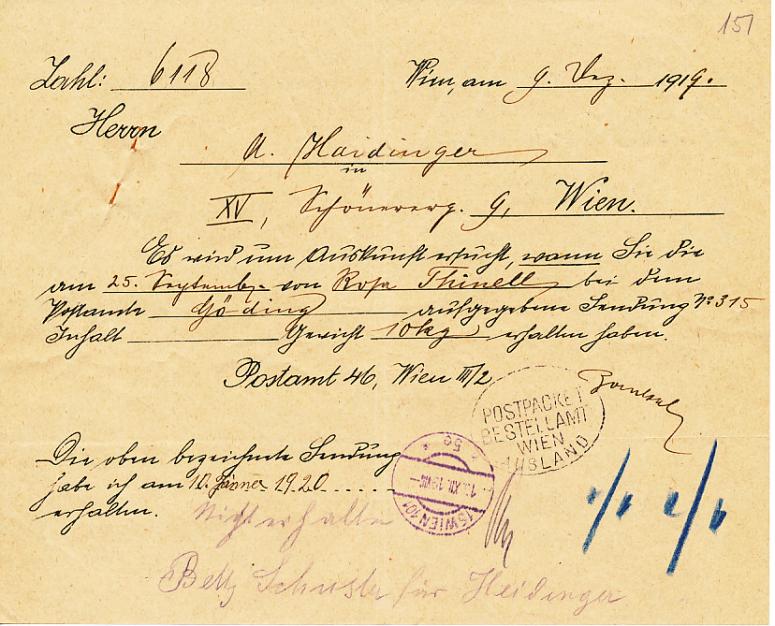 151
Zahl: 6118 Wien, am 9. Dez. 1919.
Herrn
A. Haidinger
in
XV, 9, Wien.
Es wird um Auskunft ersucht, wann Sie die
am 25. Septemb. von Rosa Thinell bei dem
Postamte Göding aufgegebene Sendung No 315
Inhalt Gewicht 10 kg erhalten haben.
Postamt 46, Wien III/2
POSTPACKET
BESTELLAMT
WIEN
AUSLAND
Die oben bezeichnete Sendung
habe ich am 10. Jänner 1920
erhalten.
Nicht erhalten
WIEN 101
Betty Schuster für Heidinger